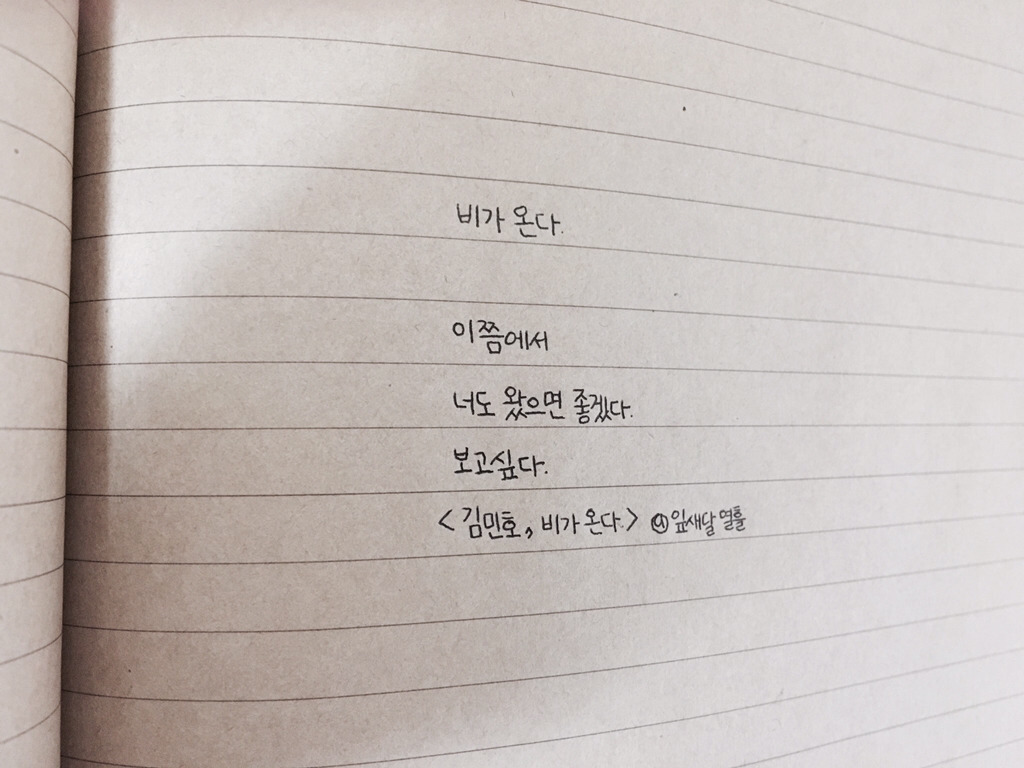 비가 온다.
이쯤에서
너도 왔으면 좋겠다.
보고싶다.
<김민호, 비가 온다.> @잎새달 열흘